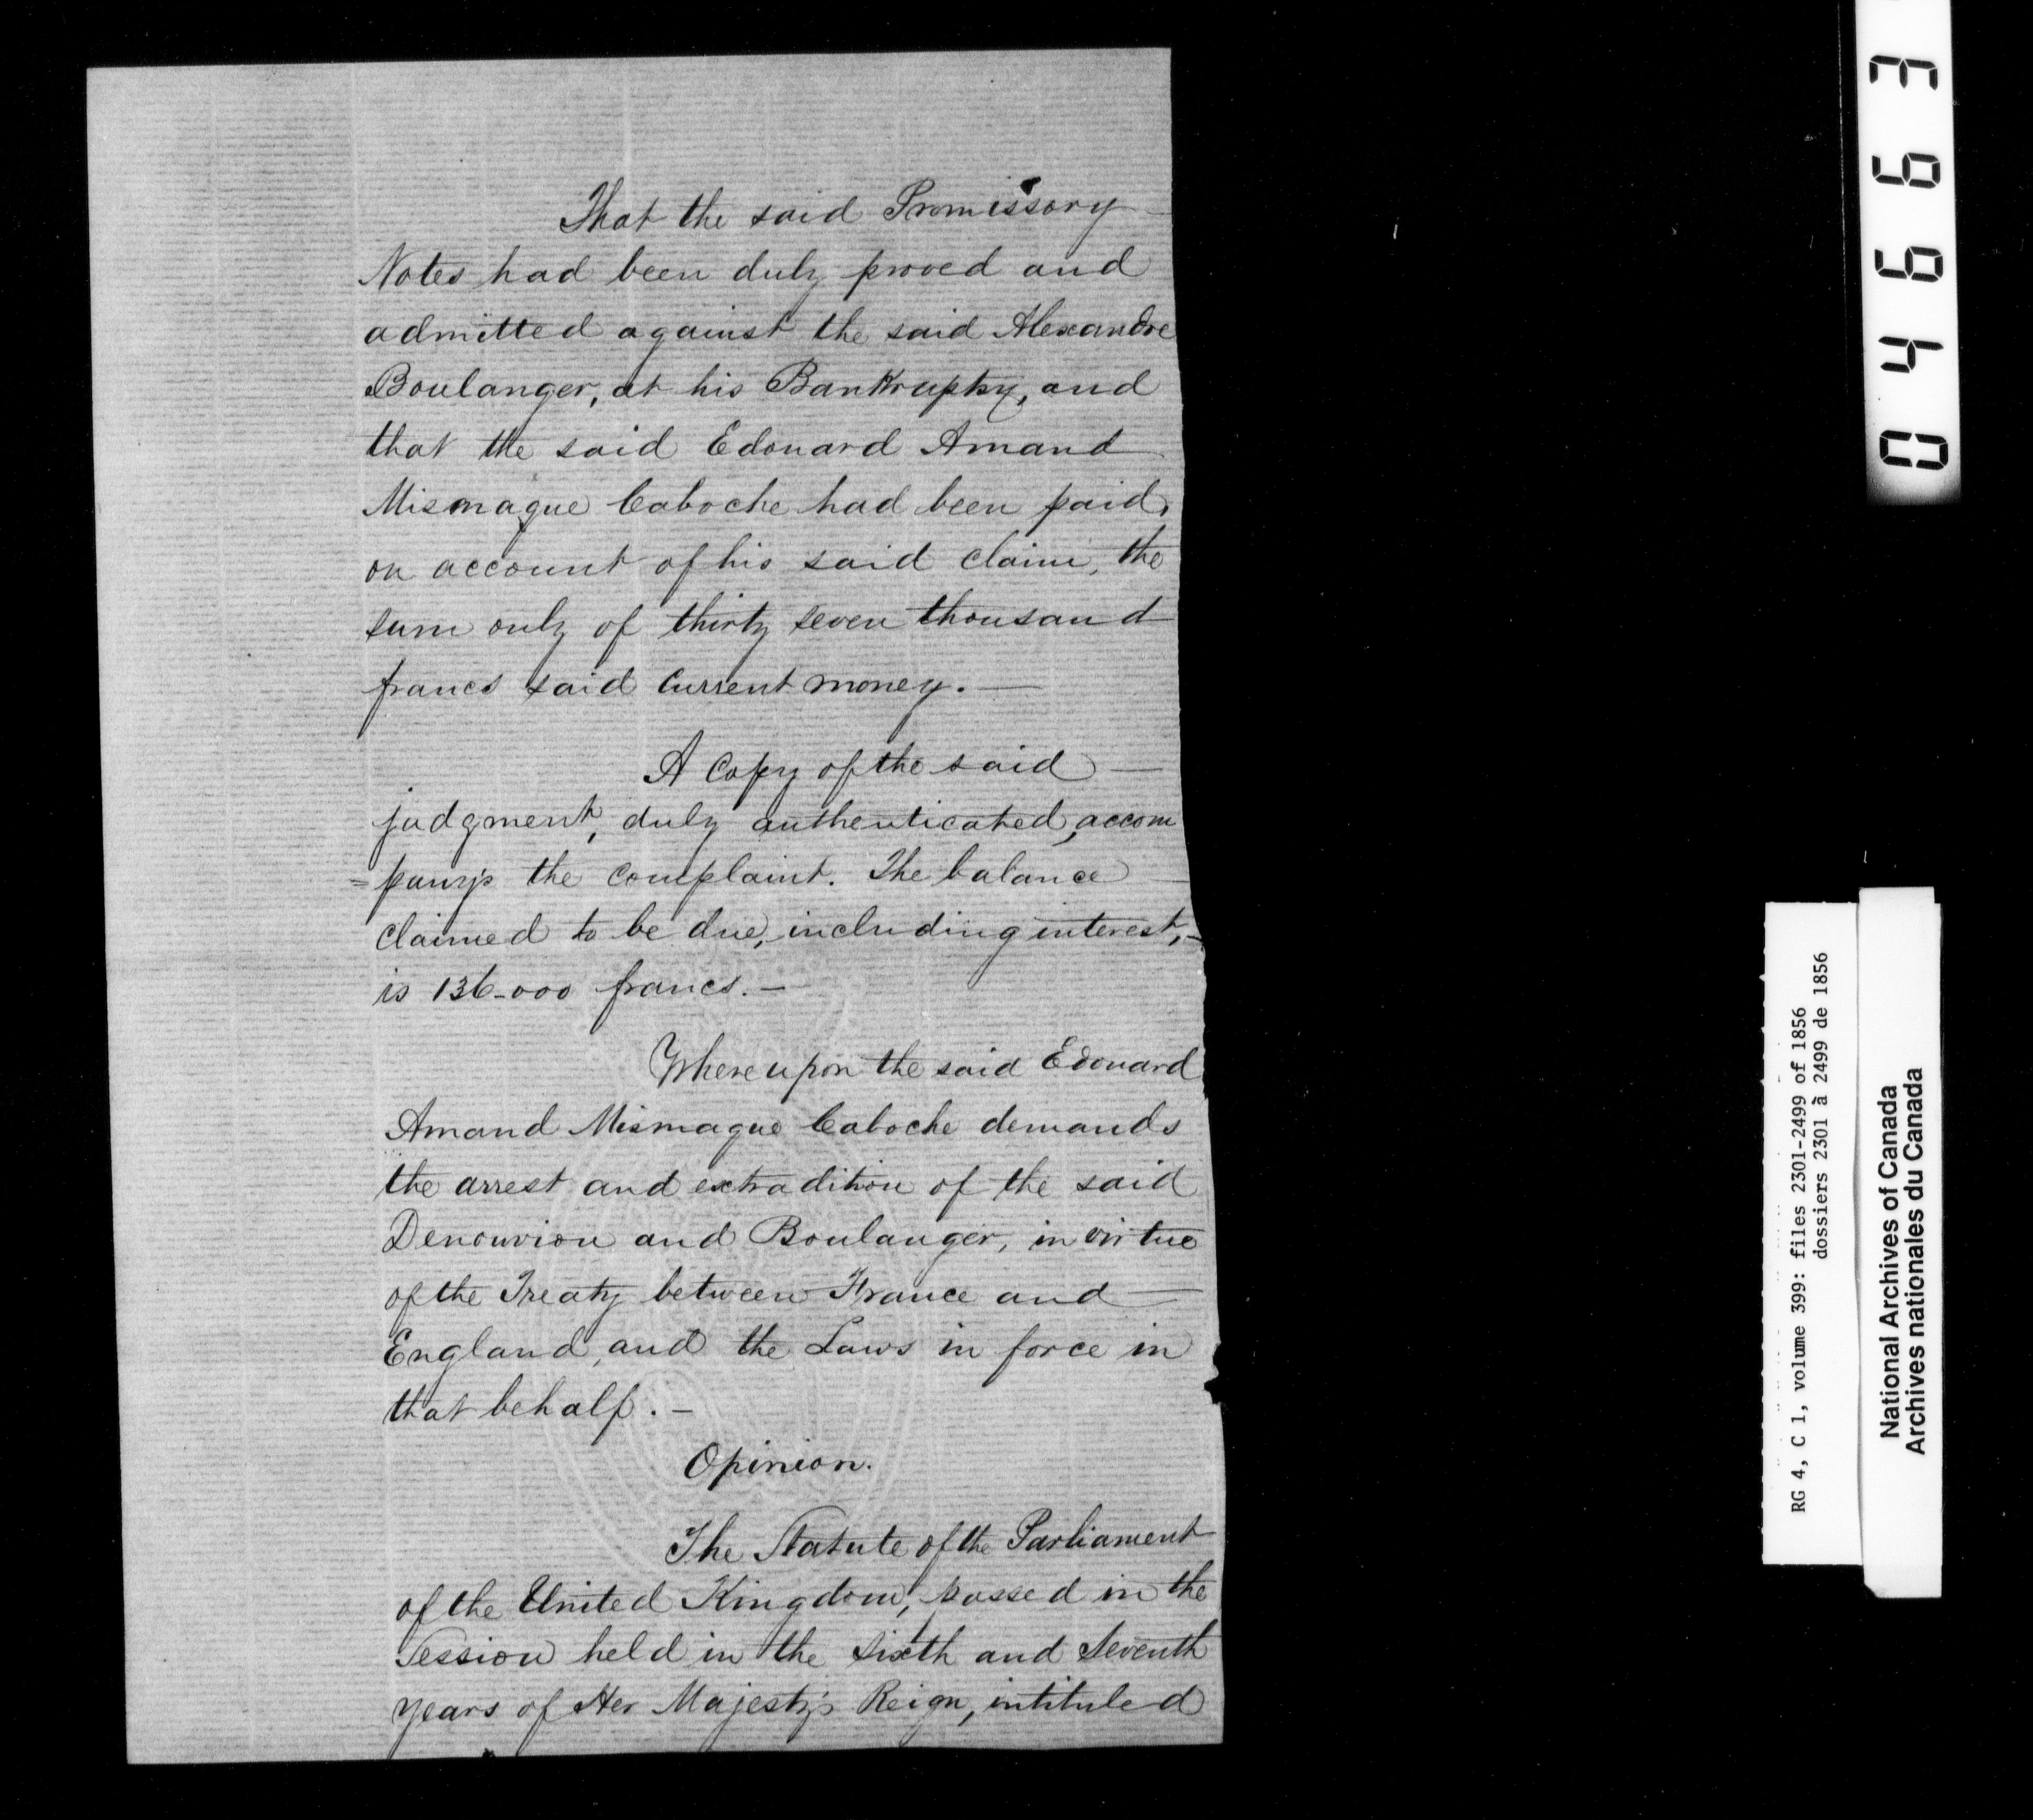 That the said Promissory
Notes had been duly proved and
admitted against the said Alexandre
Boulanger, at his Bankruptcy, and
that the said Edouard Amand
Mismaque Caboche had been paid,
on account of his said claim, the
sum only of thirty seven thousand
francs said current money. —
A Copy of the said —
judgment, duly authenticated, accom
= pany's the complaint. The balance
claimed to be due, including interest, –
is 136-000 francs. –
Whereupon the said Edouard
Amand Mismaque Caboche demands
the arrest and extradition of the said
Denouvion and Boulanger, in virtue
of the Treaty between France and —
England, and the Laws in force in
that behalf. –
Opinion.
The Statute of the Parliament
of the United Kingdom, passed in the
Session held in the sixth and Seventh
years of Her Majesty's Reign, intituled
04663
RG 4, C 1, volume 399: files 2301-2499 of 1856
dossiers 2301 à 2499 de 1856
National Archives of Canada
Archives nationales du Canada